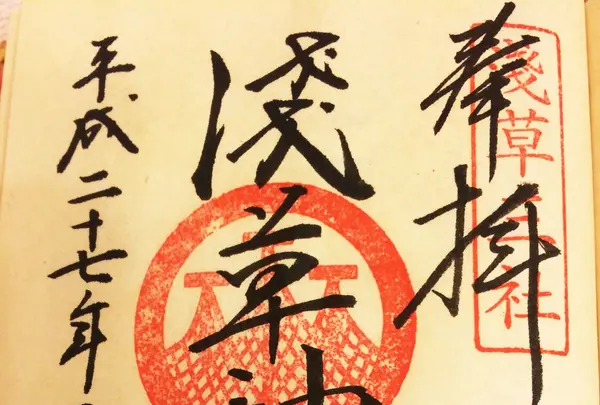 淺草三社
奉拝
淺草
平成二十七年